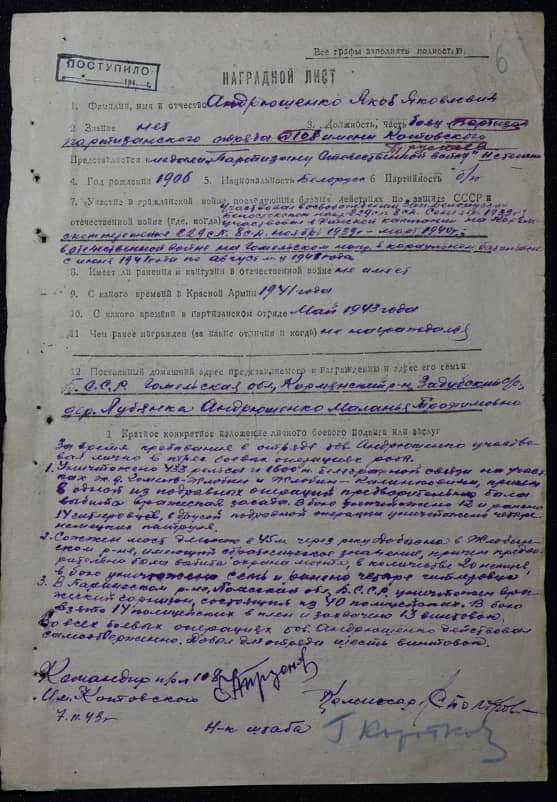 Все графы заполнять полностью.
6
ПОСТУПИЛО
194 г.
НАГРАДНОЙ ЛИСТ
1. Фамилия, имя и отчество Андрюшенко Яков Яковлевич
2 Звание нет 3. Должность, часть боец Партиза
Партизанского отряда №108 имени Котовского
Представляется к медали "Партизану Отечественной войны" II степени
4. Год рождения 1906 5. Национальность Белорус 6 Партийность б/п
7. Участие в гражданской войне, последующих боевых действиях по защите СССР и
отечественной войне (где, когда)
ноябрь 1939г - март 1940г.
в отечественной войне на Гомельском напр. в караульном батальоне
с июня 1941 года по август м-ц 1941 года
8. Имеет ли ранения и контузии в отечественной войне не имеет
9. С какого времени в Красной Армии 1941 года
10. С какого времени в партизанском отряде Май 1943 года
11 Чем ранее награжден (за какие отличия и когда) не награждался
12 Постоянный домашний адрес представляемого к награждению и адрес его семьи
Б.С.С.Р. Гомельская обл, Кормянский р-н, Задубский с/с,
дер. Лубянка Андрюшенко Маланья Трофимовна
1 Краткое конкретное изложение личного боевого подвига или заслуг
За время пребывания в отряде тов. Андрюшенко участво
вал лично в трех боевых операциях, где:
1. Уничтожено 433 рельса и 1800 м. телеграфной связи на участ
ках ж.д. Гомель-Жлобин и Жлобин-Калинковичи, причем
в одной из подрывных операций предварительно была
выбита вражеская засада. В бою уничтожено 12 и ранено
14 гитлеровцев, в другой подрывной операции уничтожен четыре
немецких патруля.
2. Сожжен мост длиною в 45 м. через реку Добрана в Жлобин
ском р-не, имеющий стратегическое значение, причем предва
рительно была выбита охрана моста, в количестве 20 немцев,
в бою уничтожено семь и ранено четыре гитлеровца
3. В р-не, обл, Б.С.С.Р. уничтожен вра
жеский гарнизон, состоящий из 40 полицейских. В бою
взято 14 полицейских в плен и захвачено 13 винтовок.
Во всех боевых операциях тов. Андрюшенко действовал
самоотверженно. Добыл для отряда шесть винтовок.
Командир п/о № 108
Им. Котовского
Комиссар
7.11.43г
Н-к штаба